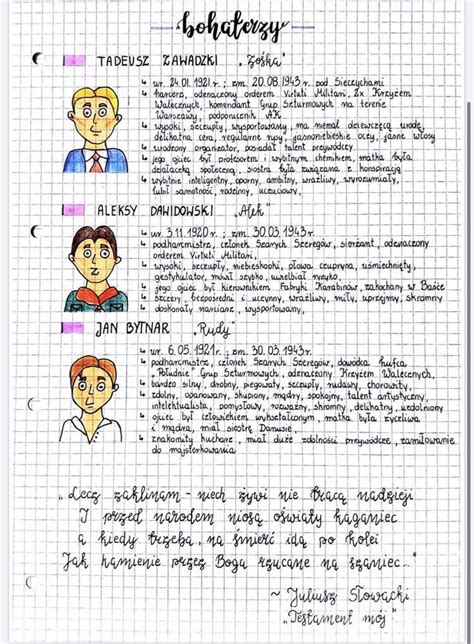 bohaterzy
TADEUSZ ZAWADZKI „Zośka"
ur. 24.01.1921r.; zm. 20.08.1943r. pod Sieczychami
harcerz, odznaczony orderem Virtuti Militari, 2x Krzyżem
Walecznych, komendant Grup Szturmowych na terenie
Warszawy, podporucznik AK
wysoki, szczupły, wysportowany, ma niemal dziewczęcą urodę,
delikatną cerę, regularne rysy, jasnoniebieskie oczy, jasne włosy
urodzony organizator, posiadał talent przywódczy
jego ojciec był profesorem i wybitnym chemikiem, matka była
działaczką społeczną, siostra była związana z konspiracją
wybitnie inteligentny, oporny, ambitny, wrażliwy, wyrozumiały,
lubił samotność, rodzinny, uczuciowy,
ALEKSY DAWIDOWSKI „Alek"
ur. 3.11.1920r.; zm. 30.03.1943r.
podharcmistrz, członek Szarych Szeregów, sierżant, odznaczony
orderem Virtuti Militari,
wysoki, szczupły, niebieskooki, płowa czupryna, uśmiechnięty,
gestykulator, mówił szybko, uwielbiał ryzyko,
jego ojciec był kierownikiem Fabryki Karabinów, zakochany w Basce
szczery, bezpośredni i uczynny, wrażliwy, miły, uprzejmy, skromny
doskonały narciarz, wysportowany,
JAN BYTNAR „Rudy"
ur. 6.05.1921r.; zm. 30.03.1943r.
podharcmistrz, członek Szarych Szeregów, dowódca hufca
„Południe" Grup Szturmowych, odznaczony Krzyżem Walecznych,
bardzo silny, drobny, piegowaty, szczupły, rudawy, chorowity,
zdolny, opanowany, skupiony, mądry, spokojny, talent artystyczny,
intelektualista, pomysłowy, rozważny, skromny, delikatny, uzdolniony
ojciec był człowiekiem wykształconym, matka była życzliwa
i mądra, miał siostrę Danusię
znakomity kucharz, miał duże zdolności przywódcze, zamiłowanie
do majsterkowania
„Lecz zaklinam - niech żywi nie tracą nadzieji
I przed narodem niosą oświaty kaganiec
a kiedy trzeba, na śmierć idą po kolei
Jak kamienie przez Boga rzucane na szaniec..."
~ Juliusz Słowacki
„Testament mój"